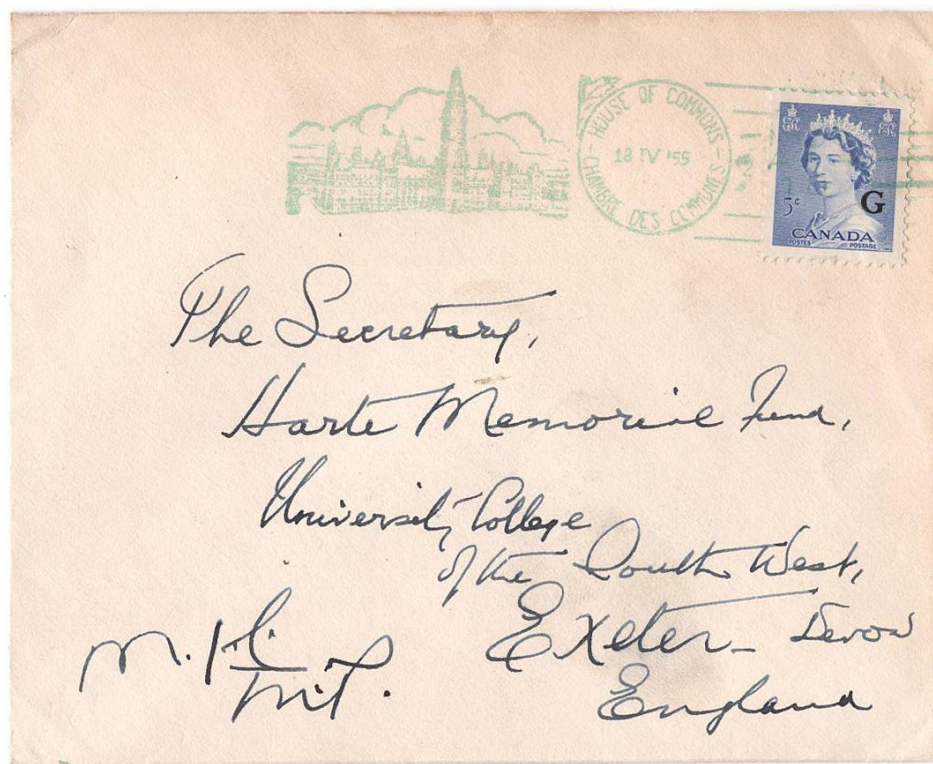 HOUSE OF COMMONS
18 IV '55
CHAMBRE DES COMMUNES
E R
E R
5¢
G
CANADA
POSTES POSTAGE
The Secretary,
Harte Memorial Fund,
University College
of the South West,
Exeter - Devon
England
M.P.